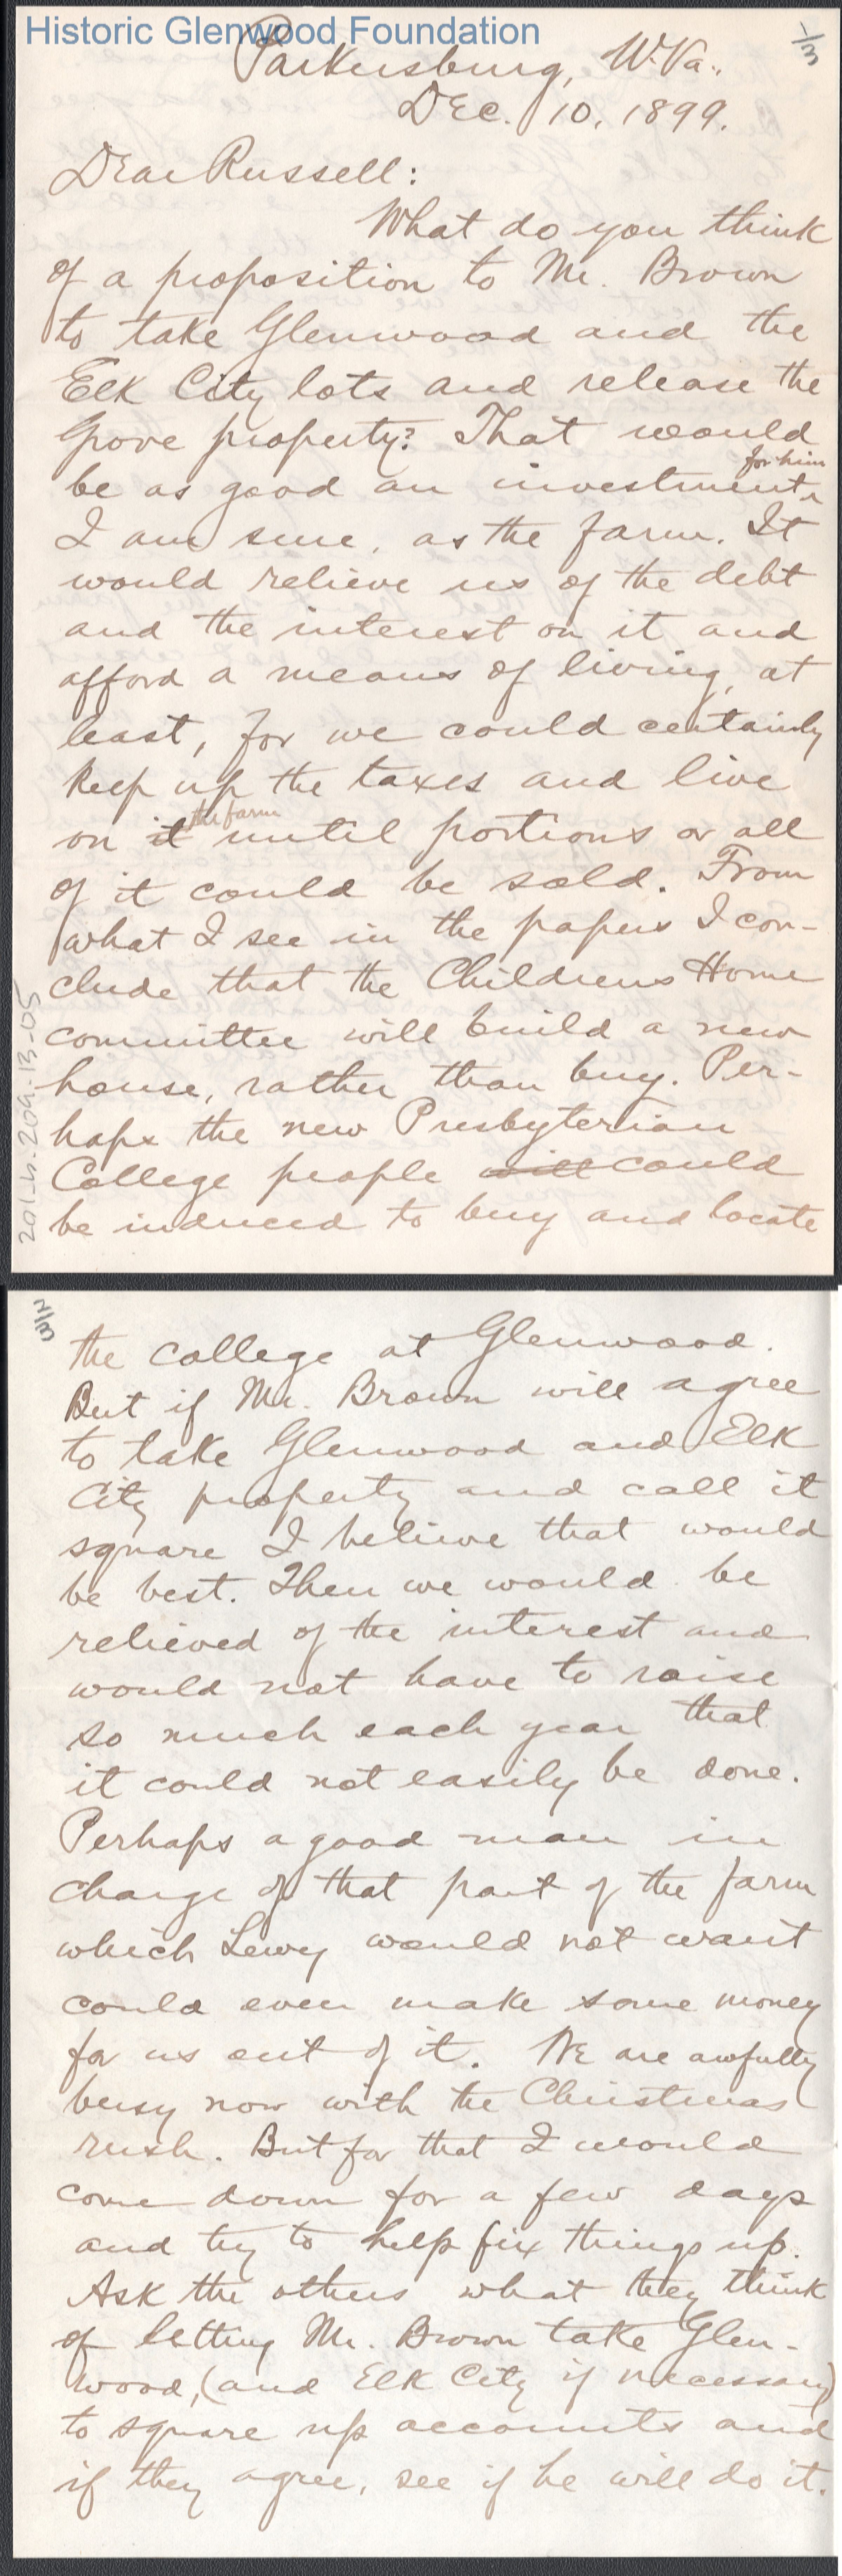 Historic Glenwood Foundation
1/3
Parkersburg, W.Va.,
Dec. 10, 1899.
Dear Russell:
What do you think
of a proposition to Mr. Brown
to take Glenwood and the
Elk City lots and release the
Grove property? That would
be as good an investment for him
I am sure, as the farm. It
would relieve us of the debt
and the interest on it and
afford a means of living, at
least, for we could certainly
keep up the taxes and live
on it the farm until portions or all
of it could be sold. From
what I see in the papers I con-
clude that the Childrens Home
committee will build a new
house, rather than buy. Per-
haps the new Presbyterian
College people will could
be induced to buy and locate
201-h.209.13-05
2/3
the college at Glenwood.
But if Mr. Brown will agree
to take Glenwood and Elk
City property and call it
square I believe that would
be best. Then we would be
relieved of the interest and
would not have to raise
so much each year that
it could not easily be done.
Perhaps a good man in
charge of that part of the farm
which Lewy would not want
could even make some money
for us out of it. We are awfully
busy now with the Christmas
rush. But for that I would
come down for a few days
and try to help fix things up.
Ask the others what they think
of letting Mr. Brown take Glen-
wood, (and Elk City if necessary)
to square up accounts and
if they agree, see if he will do it.